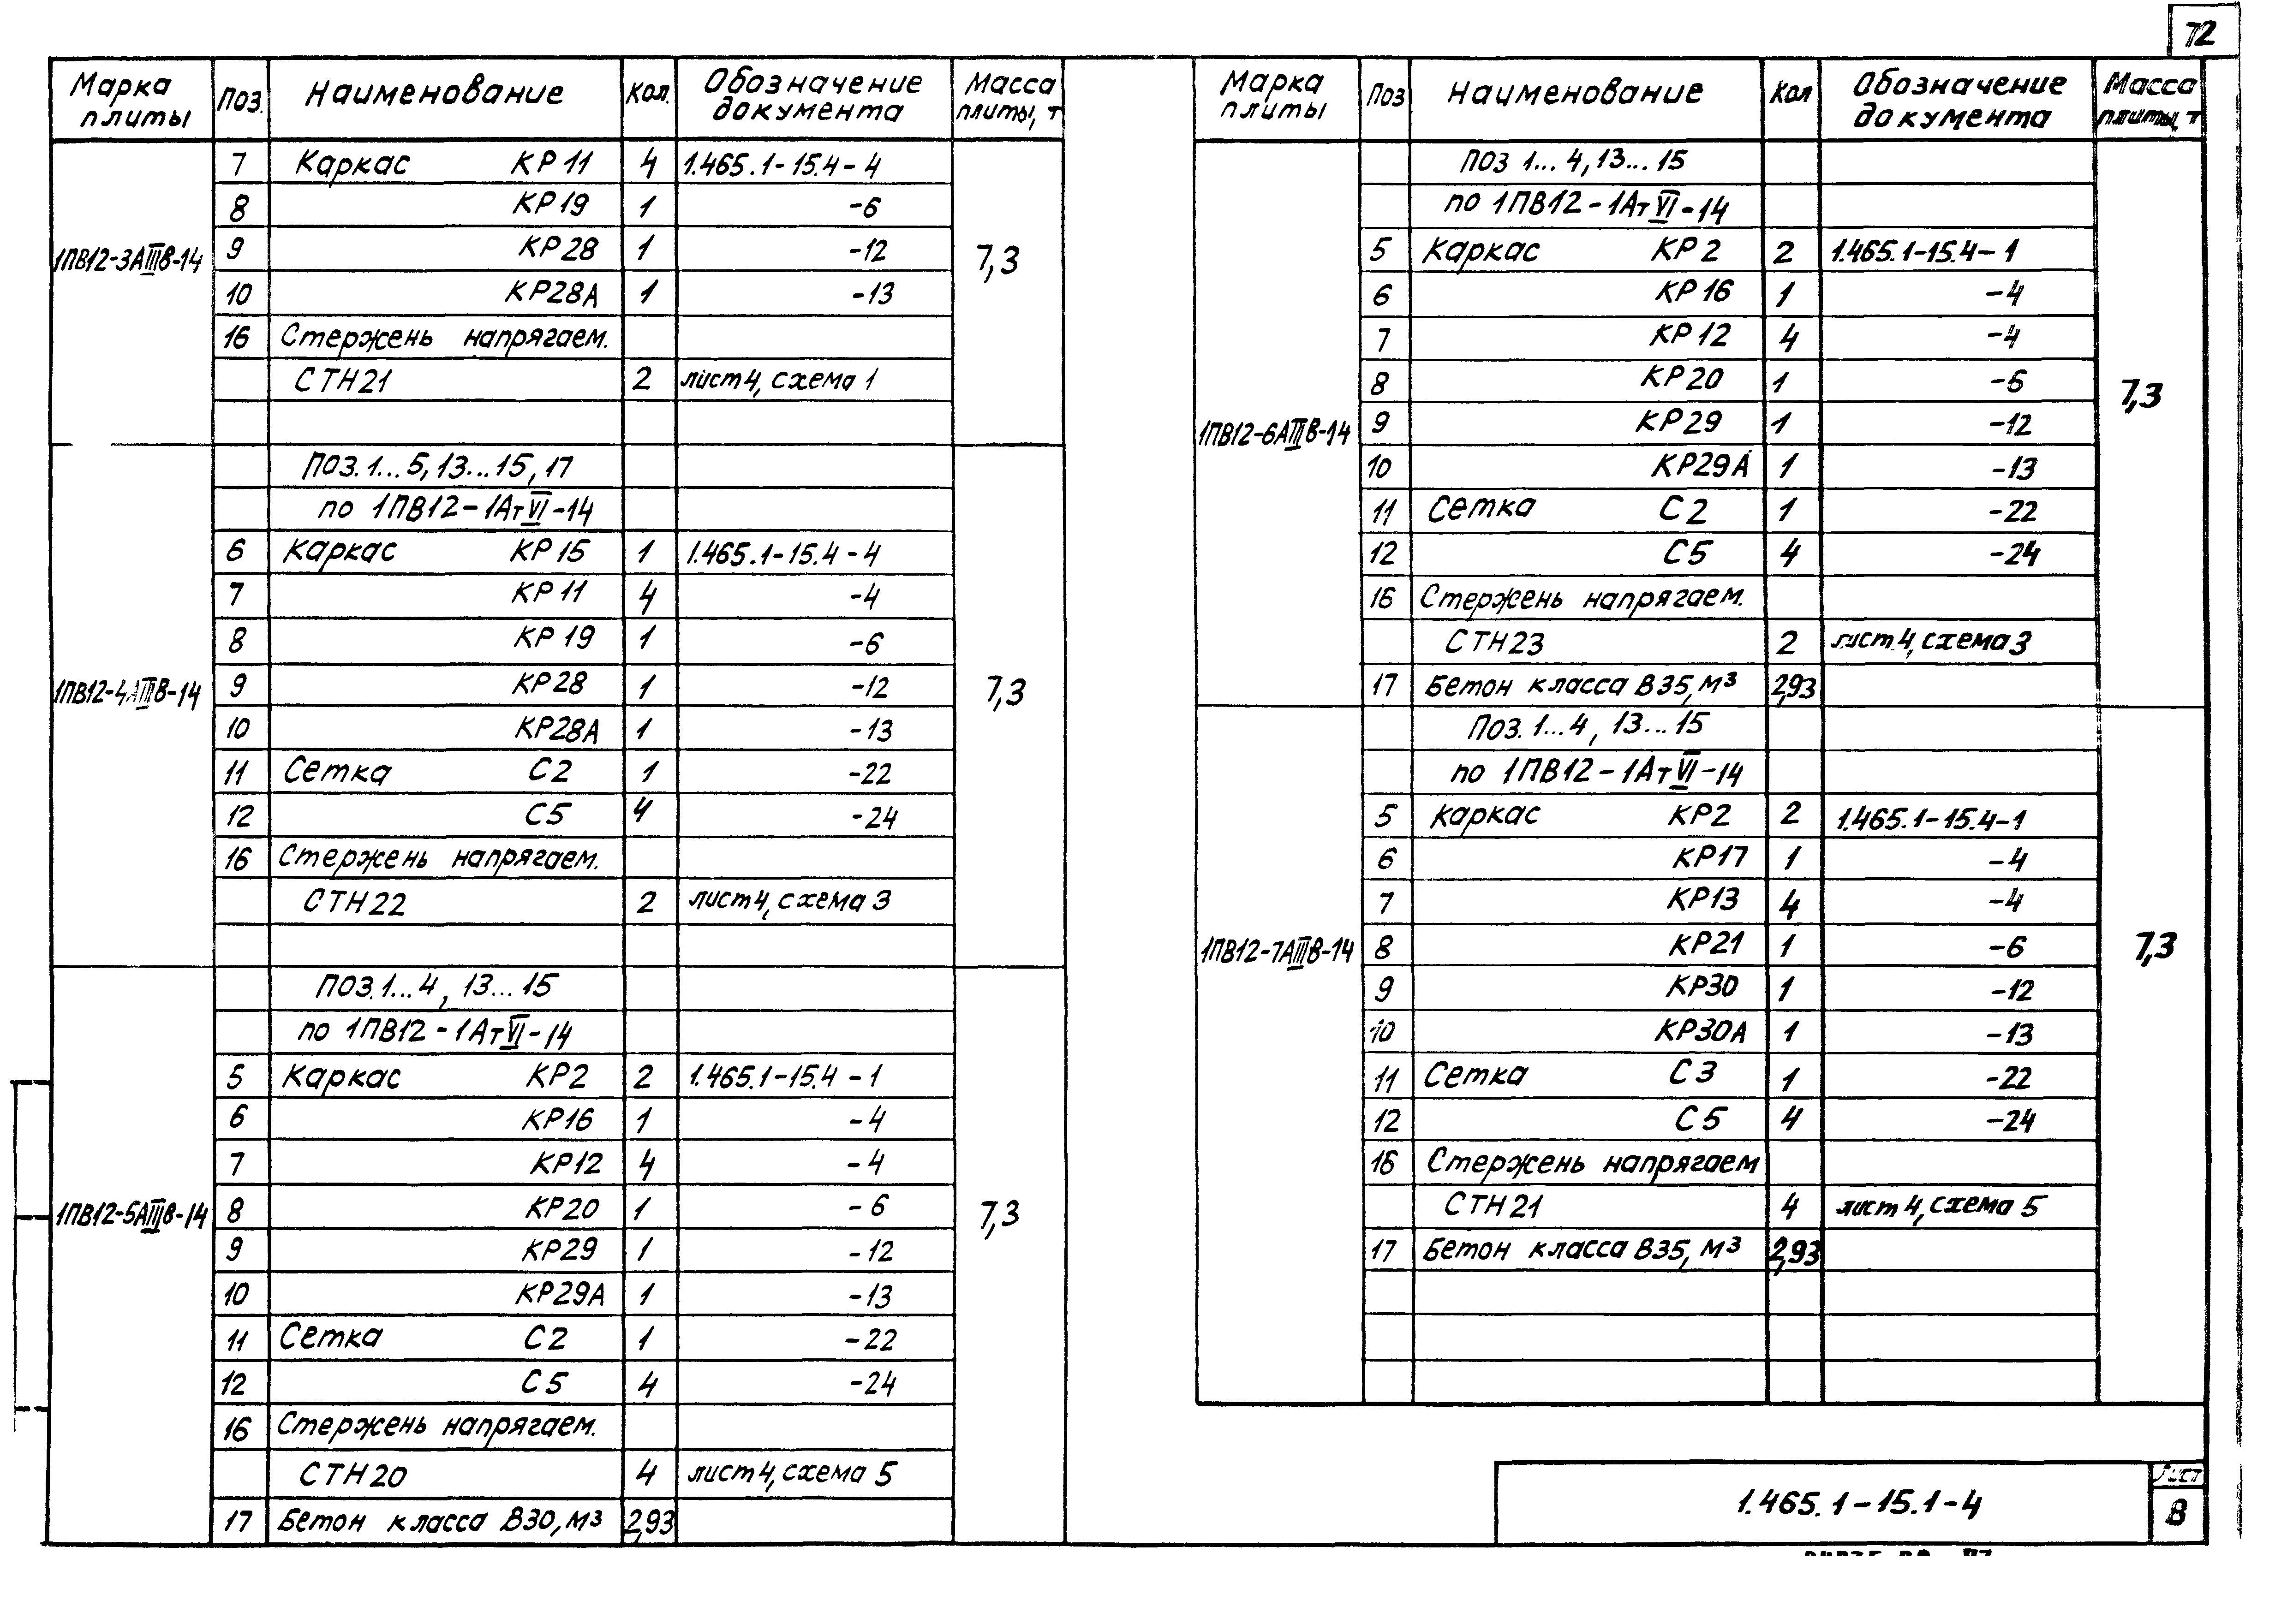 72
Марка плиты Поз. Наименование Кол. Обозначение документа Масса плиты, т
7 Каркас КР11 4 1.465.1-15.4-4
8 КР19 1 -6
1ПВ12-3АIIIв-14 9 КР28 1 -12 7,3
10 КР28А 1 -13
16 Стержень напрягаем.
СТН21 2 лист 4, схема 1
Поз. 1...5, 13...15, 17
по 1ПВ12-1АтVI-14
6 Каркас КР15 1 1.465.1-15.4-4
7 КР11 4 -4
8 КР19 1 -6
1ПВ12-4АIIIв-14 9 КР28 1 -12 7,3
10 КР28А 1 -13
11 Сетка С2 1 -22
12 С5 4 -24
16 Стержень напрягаем.
СТН22 2 лист 4, схема 3
Поз. 1...4, 13...15
по 1ПВ12-1АтVI-14
5 Каркас КР2 2 1.465.1-15.4-1
6 КР16 1 -4
7 КР12 4 -4
1ПВ12-5АIIIв-14 8 КР20 1 -6 7,3
9 КР29 1 -12
10 КР29А 1 -13
11 Сетка С2 1 -22
12 С5 4 -24
16 Стержень напрягаем.
СТН20 4 лист 4, схема 5
17 Бетон класса В30, м³ 2,93
Марка плиты Поз Наименование Кол Обозначение документа Масса плиты, т
Поз 1...4, 13...15
по 1ПВ12-1АтVI-14
5 Каркас КР2 2 1.465.1-15.4-1
6 КР16 1 -4
7 КР12 4 -4
8 КР20 1 -6 7,3
1ПВ12-6АIIIв-14 9 КР29 1 -12
10 КР29А 1 -13
11 Сетка С2 1 -22
12 С5 4 -24
16 Стержень напрягаем.
СТН23 2 лист 4, схема 3
17 Бетон класса В35, м³ 2,93
Поз. 1...4, 13...15
по 1ПВ12-1АтVI-14
5 Каркас КР2 2 1.465.1-15.4-1
6 КР17 1 -4
7 КР13 4 -4
1ПВ12-7АIIIв-14 8 КР21 1 -6 7,3
9 КР30 1 -12
10 КР30А 1 -13
11 Сетка С3 1 -22
12 С5 4 -24
16 Стержень напрягаем
СТН21 4 лист 4, схема 5
17 Бетон класса В35, м³ 2,93
1.465.1-15.1-4
Лист
8